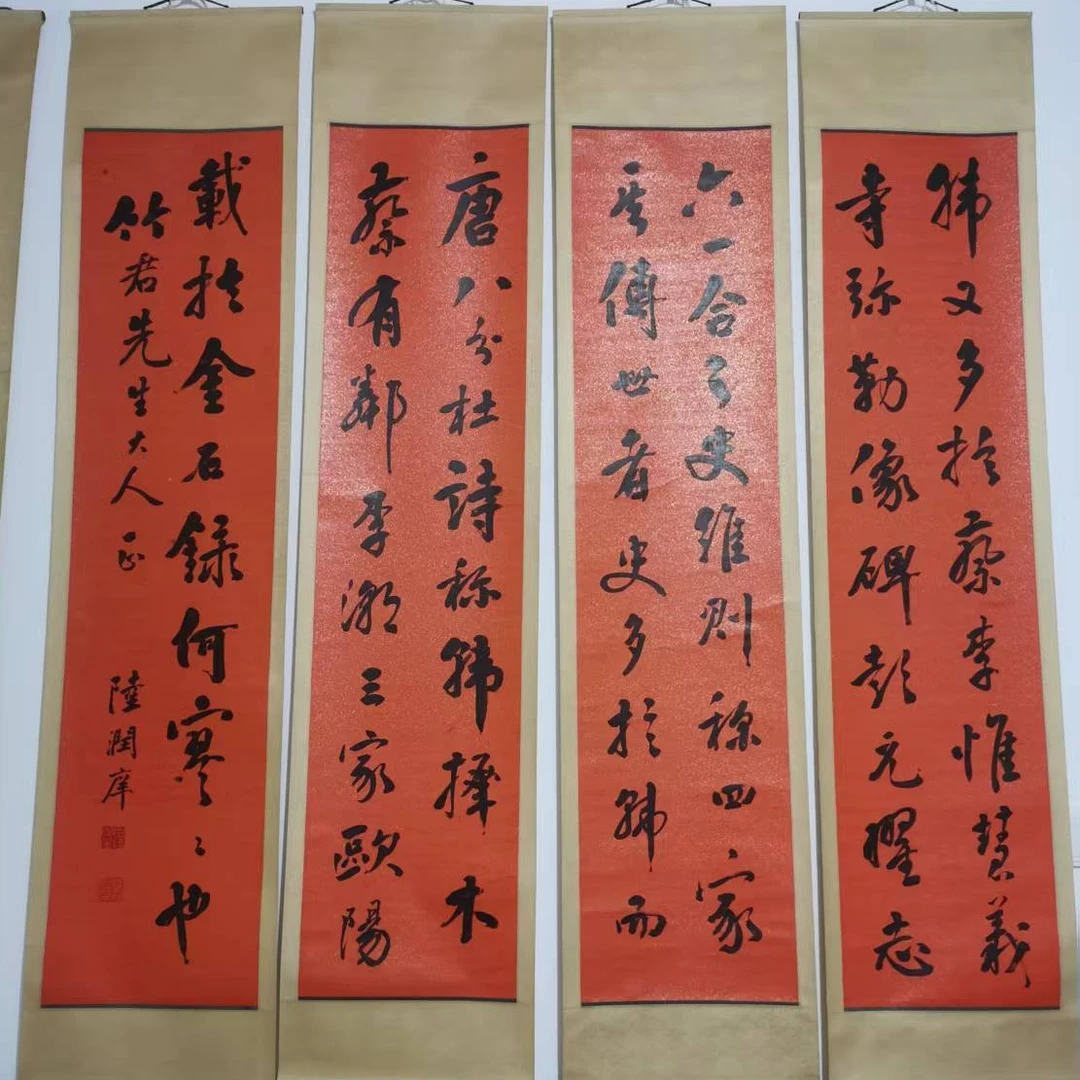 唐八分杜詩称韓擇木
蔡有鄰李潮三家歐陽
六一合之史維則称四家
其傳世者史多扵韓而
韓又多扵蔡李惟慧義
寺弥勒像碑彭元曜志
載扵金石録何寥〻也
竹君先生大人正
陸潤庠